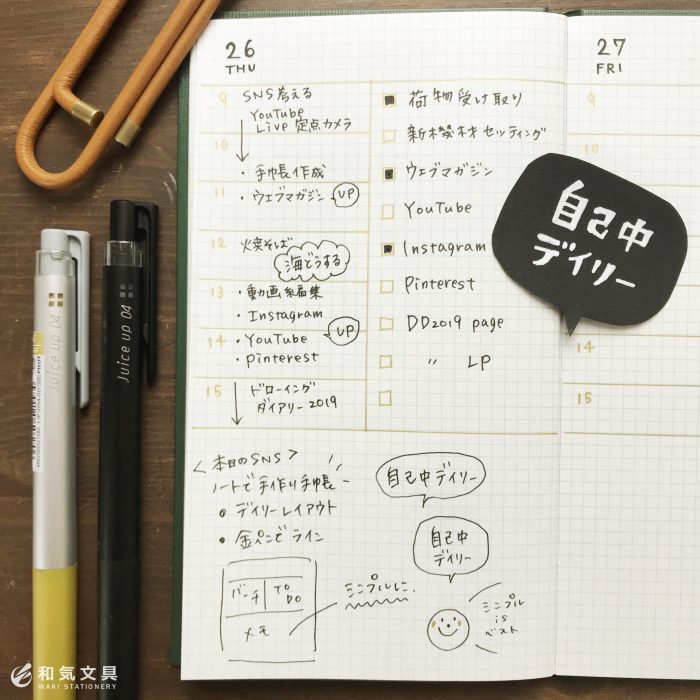 26
THU
9 SNS考える
YouTube
Live 定点カメラ
10
・手帳作成
11 ・ウェブマガジン UP
12 火焚そば
海どうする
13 ・動画編集
・Instagram
14 ・YouTube UP
・pinterest
15 ドローイング
ダイアリー2019
荷物受け取り
新機材セッティング
ウェブマガジン
YouTube
Instagram
Pinterest
DD2019 page
〃 LP
<本日のSNS>
ノートで手作り手帳
● デイリーレイアウト
● 金ペンでライン
バーチ TO DO
メモ
シンプルに.
自己中デイリー
自己中
デイリー
シンプル
is
ベスト
27
FRI
9
10
自己中
デイリー
14
15
Juice up 04
Juice up 04
PILOT
和気文具
WAKI STATIONERY